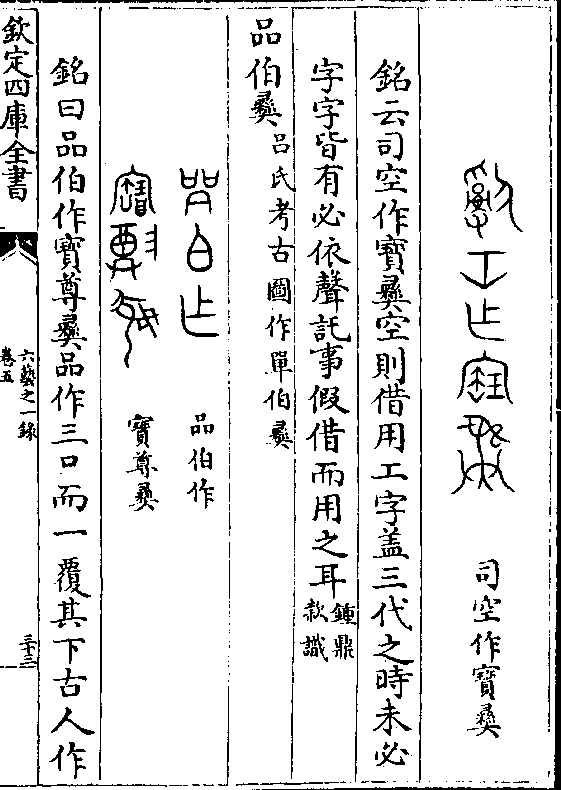 司空作寶彞
銘云司空作寶彞空則借用工字盖三代之時未必
字字皆有必依聲託事假借而用之耳鍾鼎
款識
品伯彞吕氏考古圖作單伯彞
品伯作
寶尊彞
銘曰品伯作寶尊彞品作三口而一覆其下古人作
欽定四庫全書
六藝之一錄
卷五
三十三